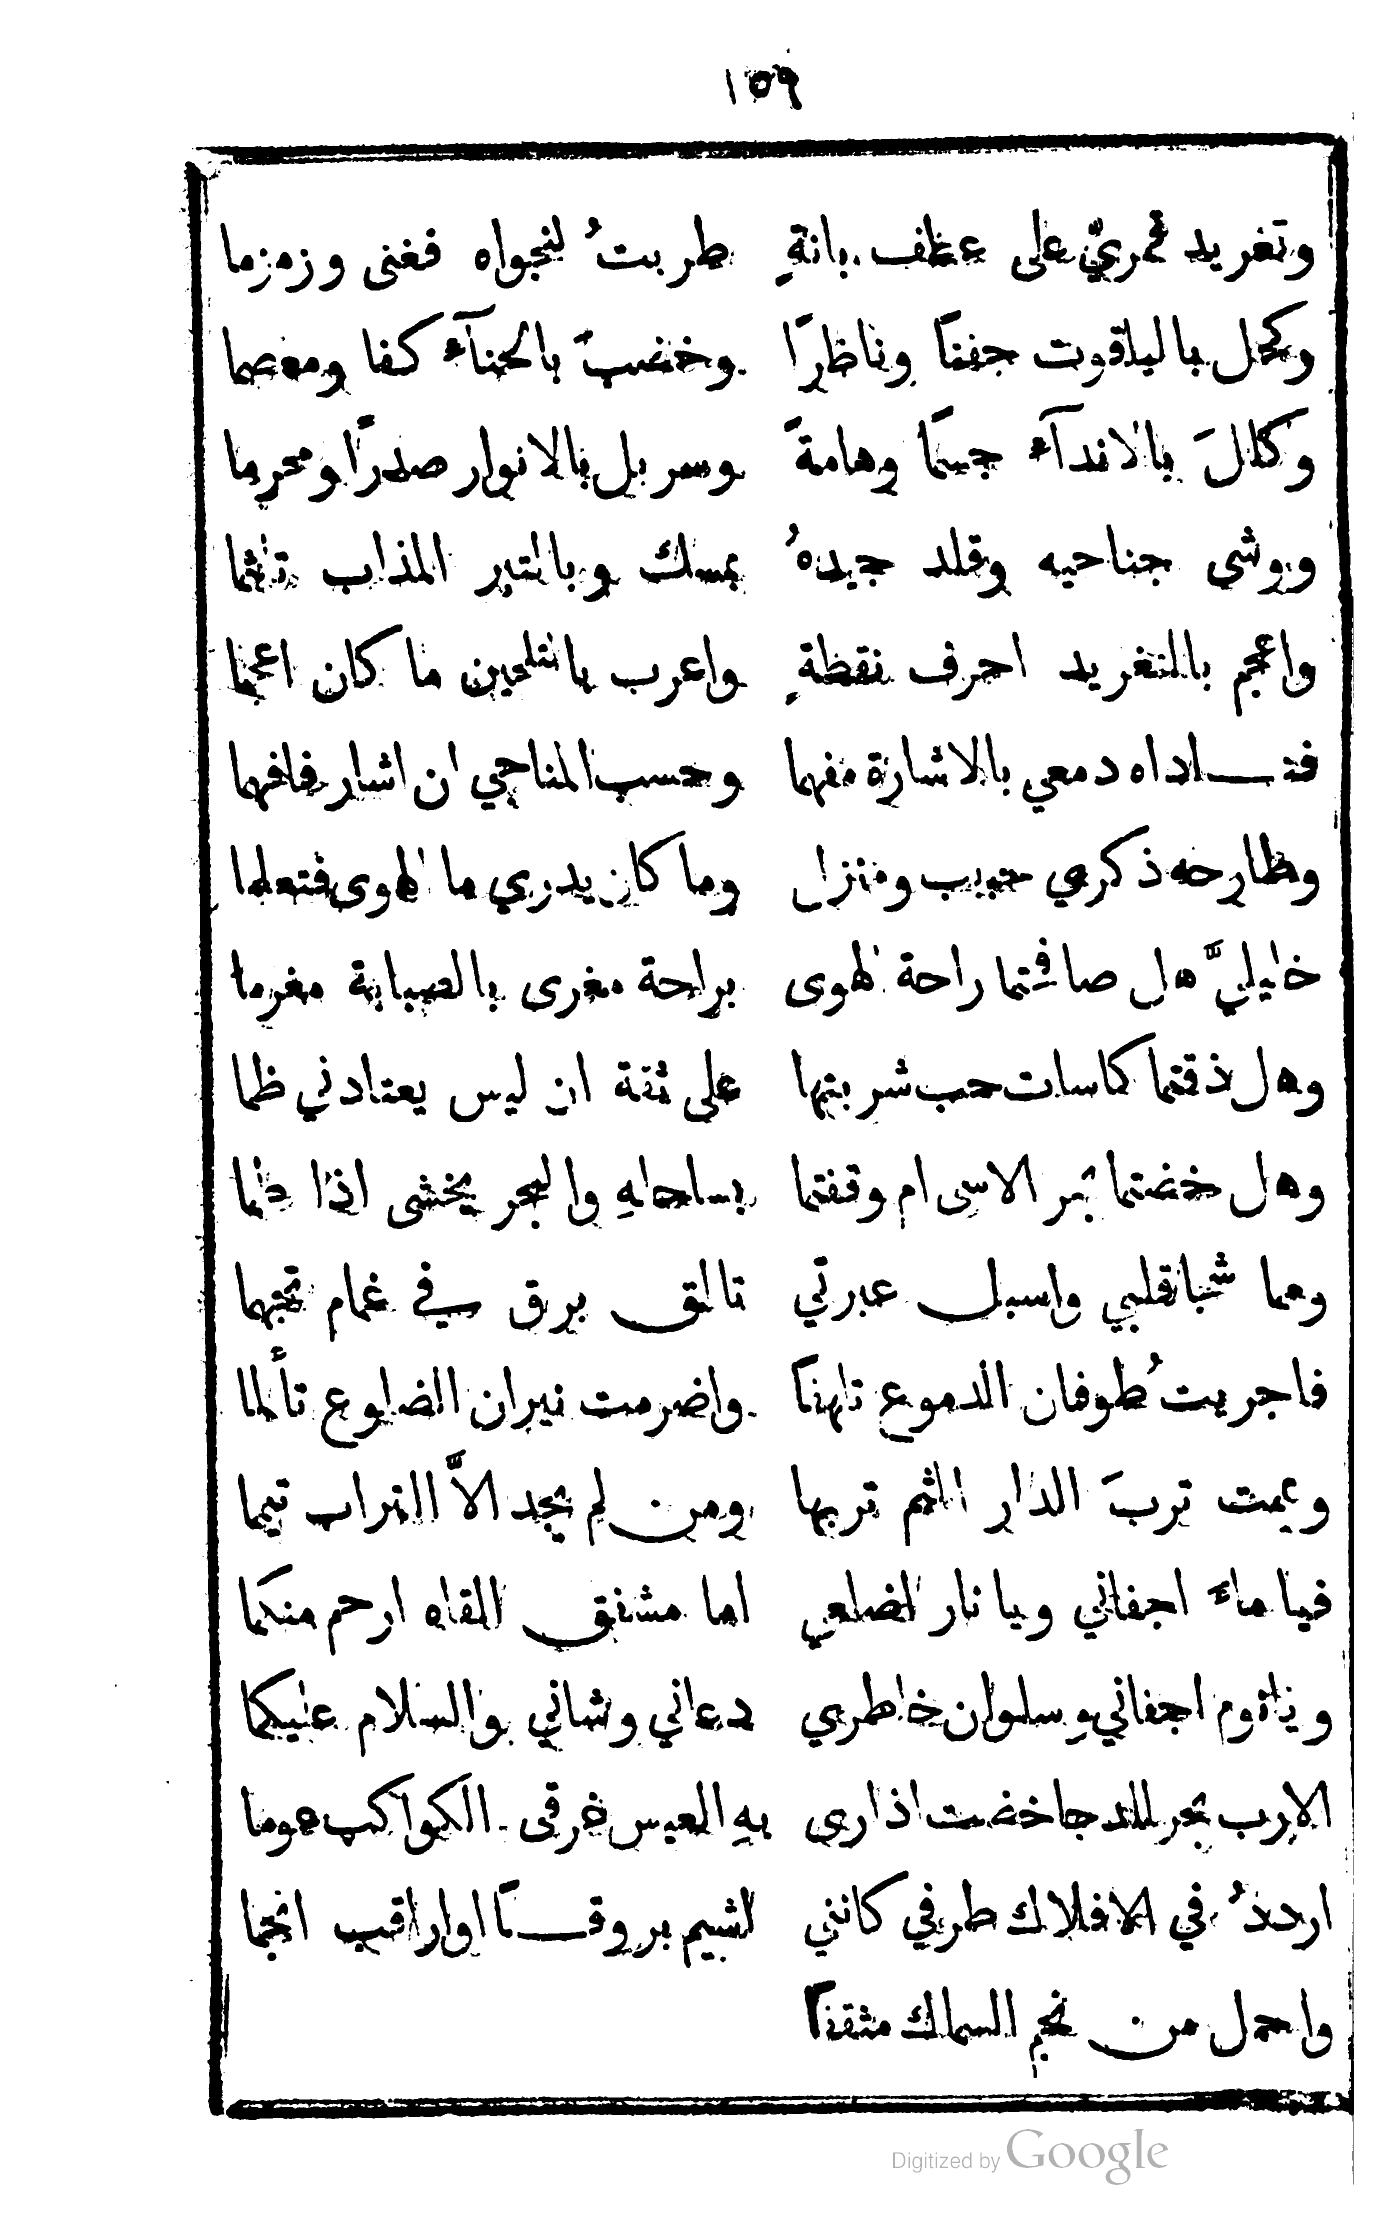 ١٥٩
وتغريد قمريّ على عطف بانةٍ طربتُ لنجواه فغنى وزمزما
وكحل بالياقوت جفنًا وناظرًا وخضبَ بالحنآء كفا ومعصما
وكللَ بالاندآء جسمًا وهامةً وسربل بالانوار صدرًا ومحرما
ووشى جناحيه وقلد جيدهُ بمسك وبالتبر المذاب تلثما
واعجم بالتغريد احرف نقطةٍ واعرب بالتلحين ما كان اعجما
فنـــاداه دمعي بالاشارة مفهما وحسب المناجي ان اشار فافهما
وطارحه ذكرى حبيب ومنزل وما كان يدري ما الهوى فتعلما
خليليَّ هل صافحتما راحة الهوى براحة مغرى بالصبابة مغرما
وهل ذقتما كاسات حب شربتها على ثقة ان ليس يعتادني ظما
وهل خضتما بحر الاسى ام وقفتما بساحلهِ والبحر يخشى اذا طما
ومما شجا قلبي واسبل عبرتي تالق برق في غمام تجهما
فاجريت طُوفان الدموع تلهفًا واضرمت نيران الضلوع تألما
ويممت تربَ الدار الثم تربها ومن لم يجد الاَّ التراب تيمما
فيا ماءَ اجفاني ويا نار اضلعي اما مشفق القاه ارحم منكما
ويا نوم اجفاني وسلوان خاطري دعاني وشاني والسلام عليكما
الا رب بحر للدجا خضت اذ ارى بهِ العيس غرقى الكواكب عوما
ارددُ في الافلاك طرفي كانني اشيم بروقـــًا او اراقب انجما
واحمل من نجم السماك مثقفًا
Digitized by Google